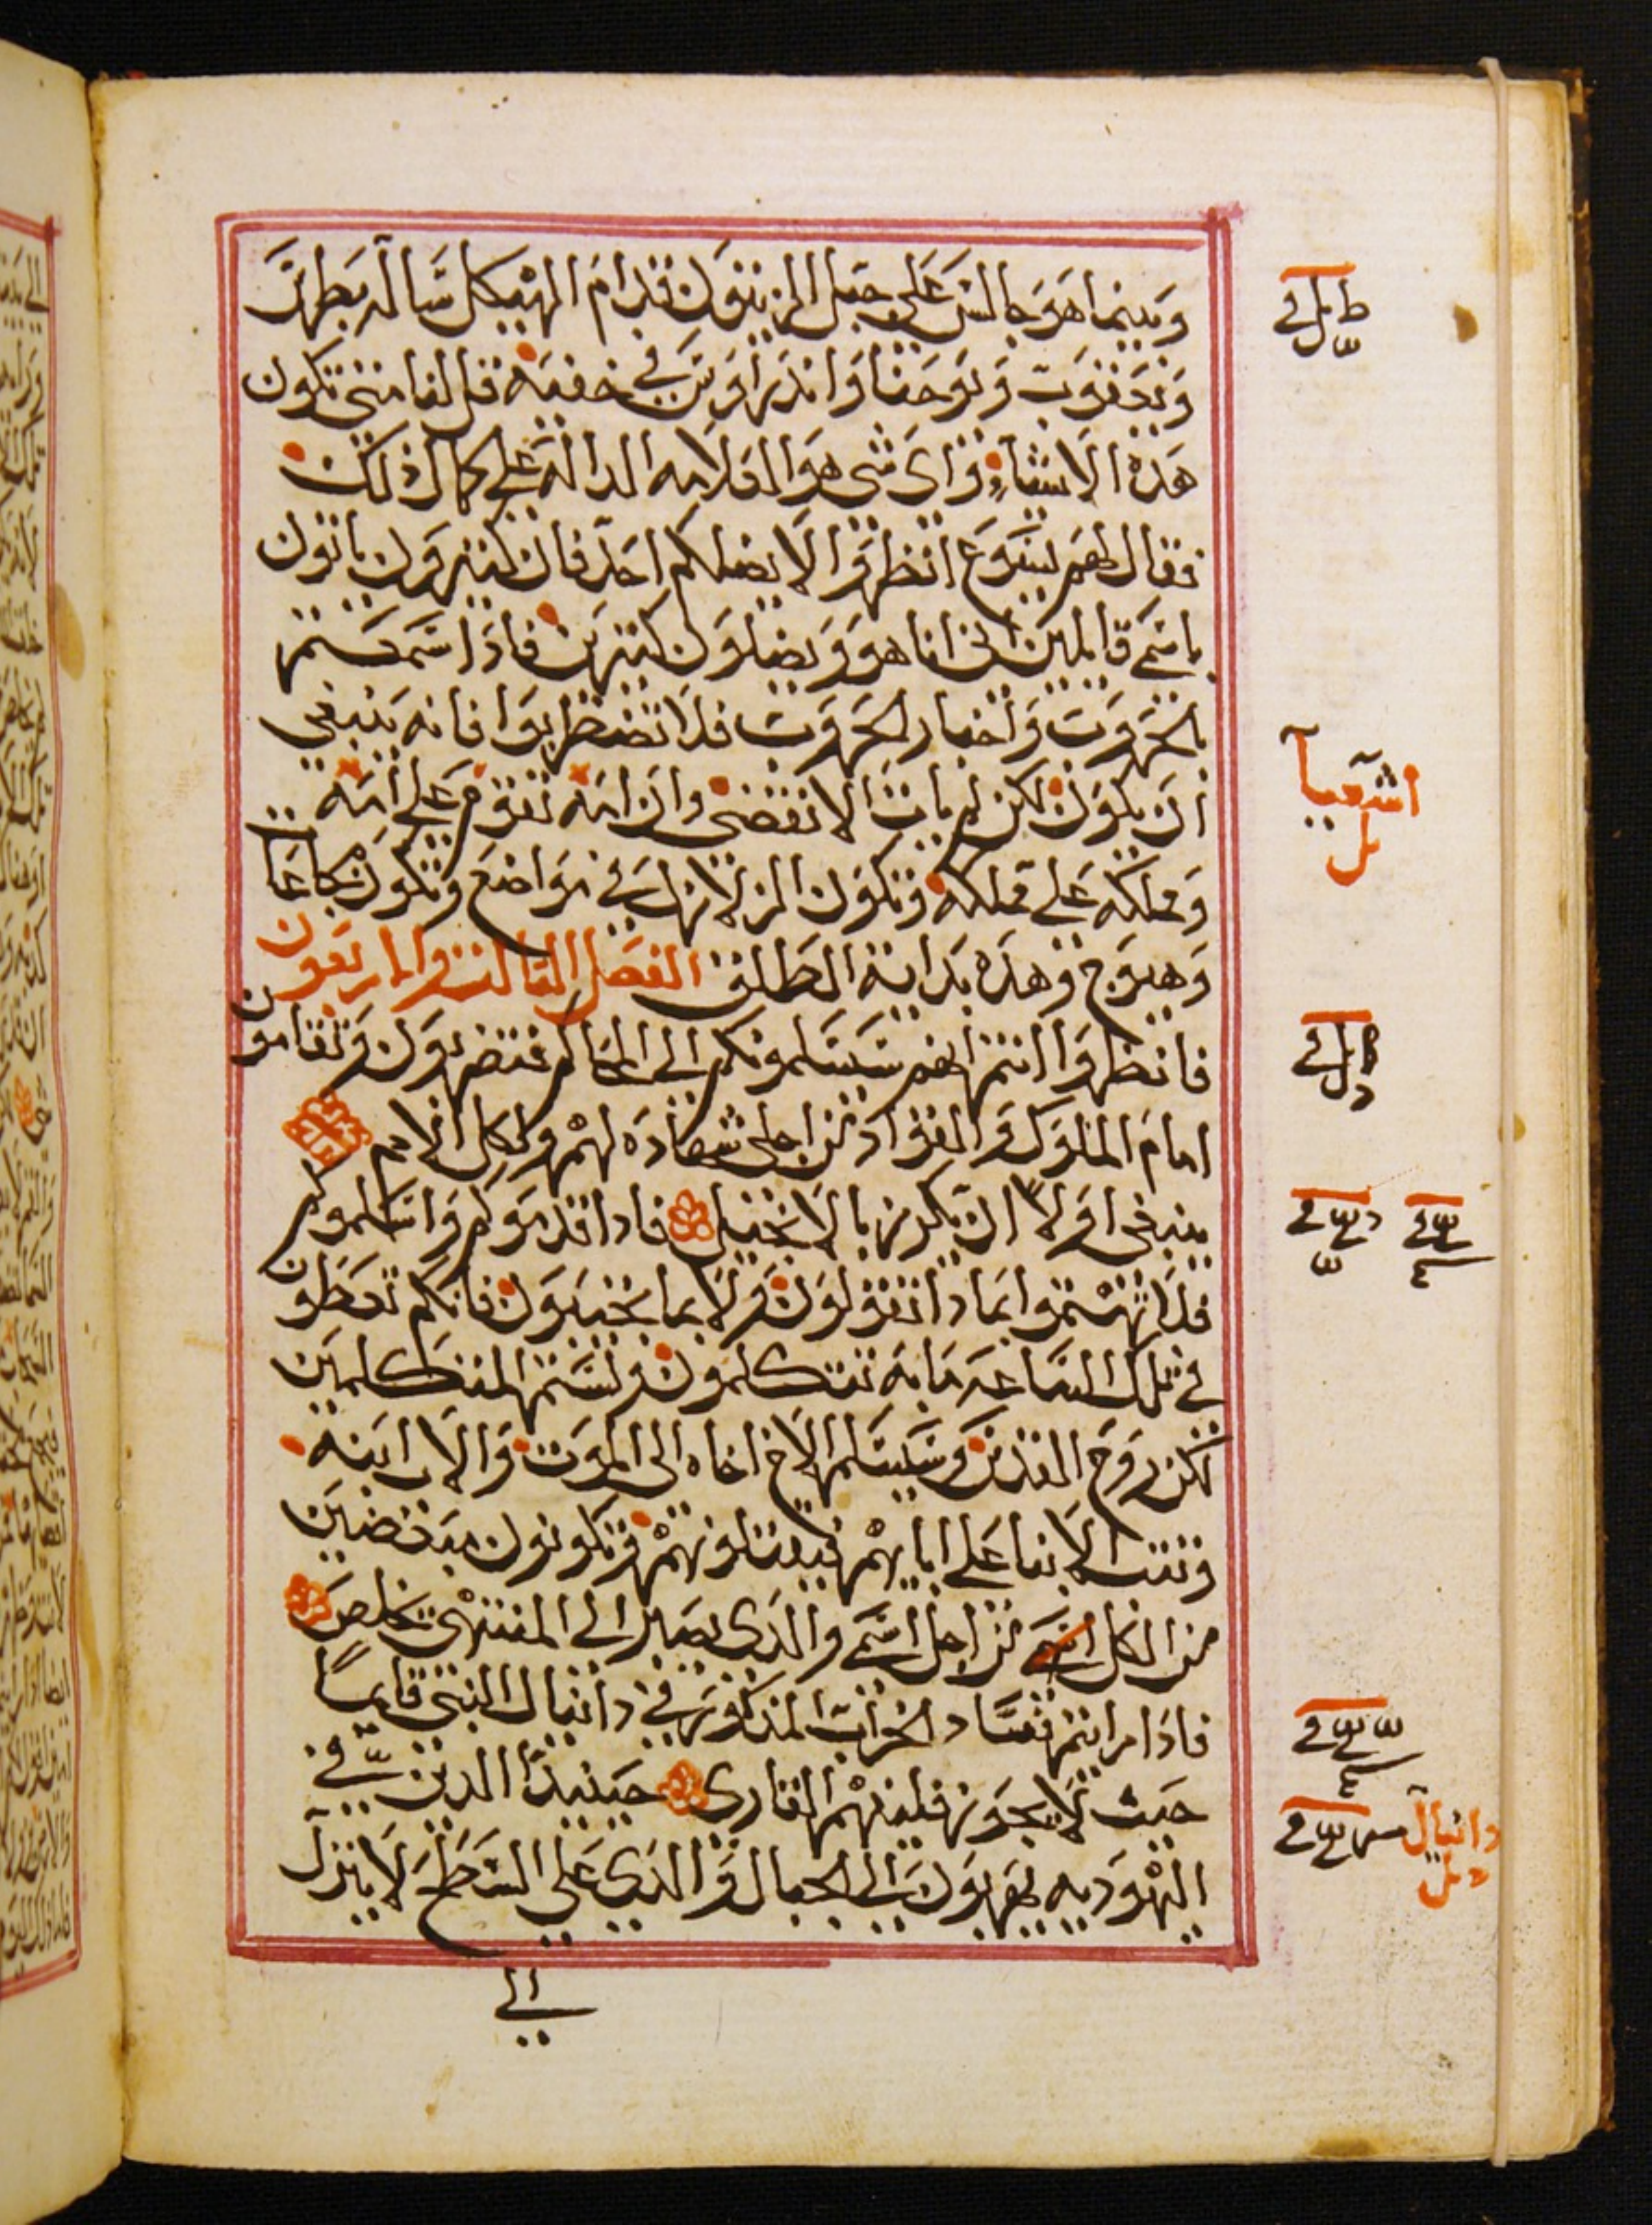 وبينما هو جالس على جبل الزيتون قدام الهيكل ساله بطرس
ويعقوب ويوحنا واندراوس في خفيه قل لنا متى تكون
هذه الاشياء واى شى هو العلامه الداله على كمال ذلك
فقال لهم يسوع انظروا لا يضلكم احد فان كثيرون ياتون
باسمى قايلين انى انا هو ويضلون كثيرين فاذا سمعتم
بالحروب واخبار الحروب فلا تضطربوا فانه ينبغي
ان يكون لكن لم يات الانقضى وان امه تقوم على امه
ومملكه على مملكه وتكون الزلازل في مواضع وتكون مجاعا
وهيوج وهذه بداية الطلق الفصل الثالث والاربعون
فانظروا انتم انهم سيسلمونكم الى المحاكم فتضربون وتقامون
امام الملوك والقواد من اجلى شهاده لهم ولكل الامم
ينبغى اولا ان يكرز بالانجيل فاذا قدموكم واسلموكم
فلا تهتموا بماذا تقولون ولا بما تجيبون فانكم تعطون
في تلك الساعه ما به تتكلمون ولستم المتكلمين
لكن روح القدس وسيسلم الاخ اخاه الى الموت والاب ابنه
وتثب الابنا على ابايهم فيقتلونهم وتكونون مبغضين
من الكل من اجل اسمى والذى يصبر الى المنتهى يخلص
فاذا رايتم فساد الخراب المذكور في دانيال النبي قايما
حيث لا يجوز فليفهم القارى حينيذا الدين في
اليهوديه يهربون الى الجبال والذى على السطح لا ينزل
الى
اشعيا
دانيال